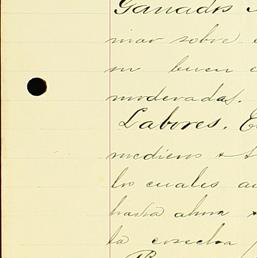 Ganados
inar sobre
su buen
moderadas.
Labores. E
medieros
los cuales
hasta ahora
la cosecha